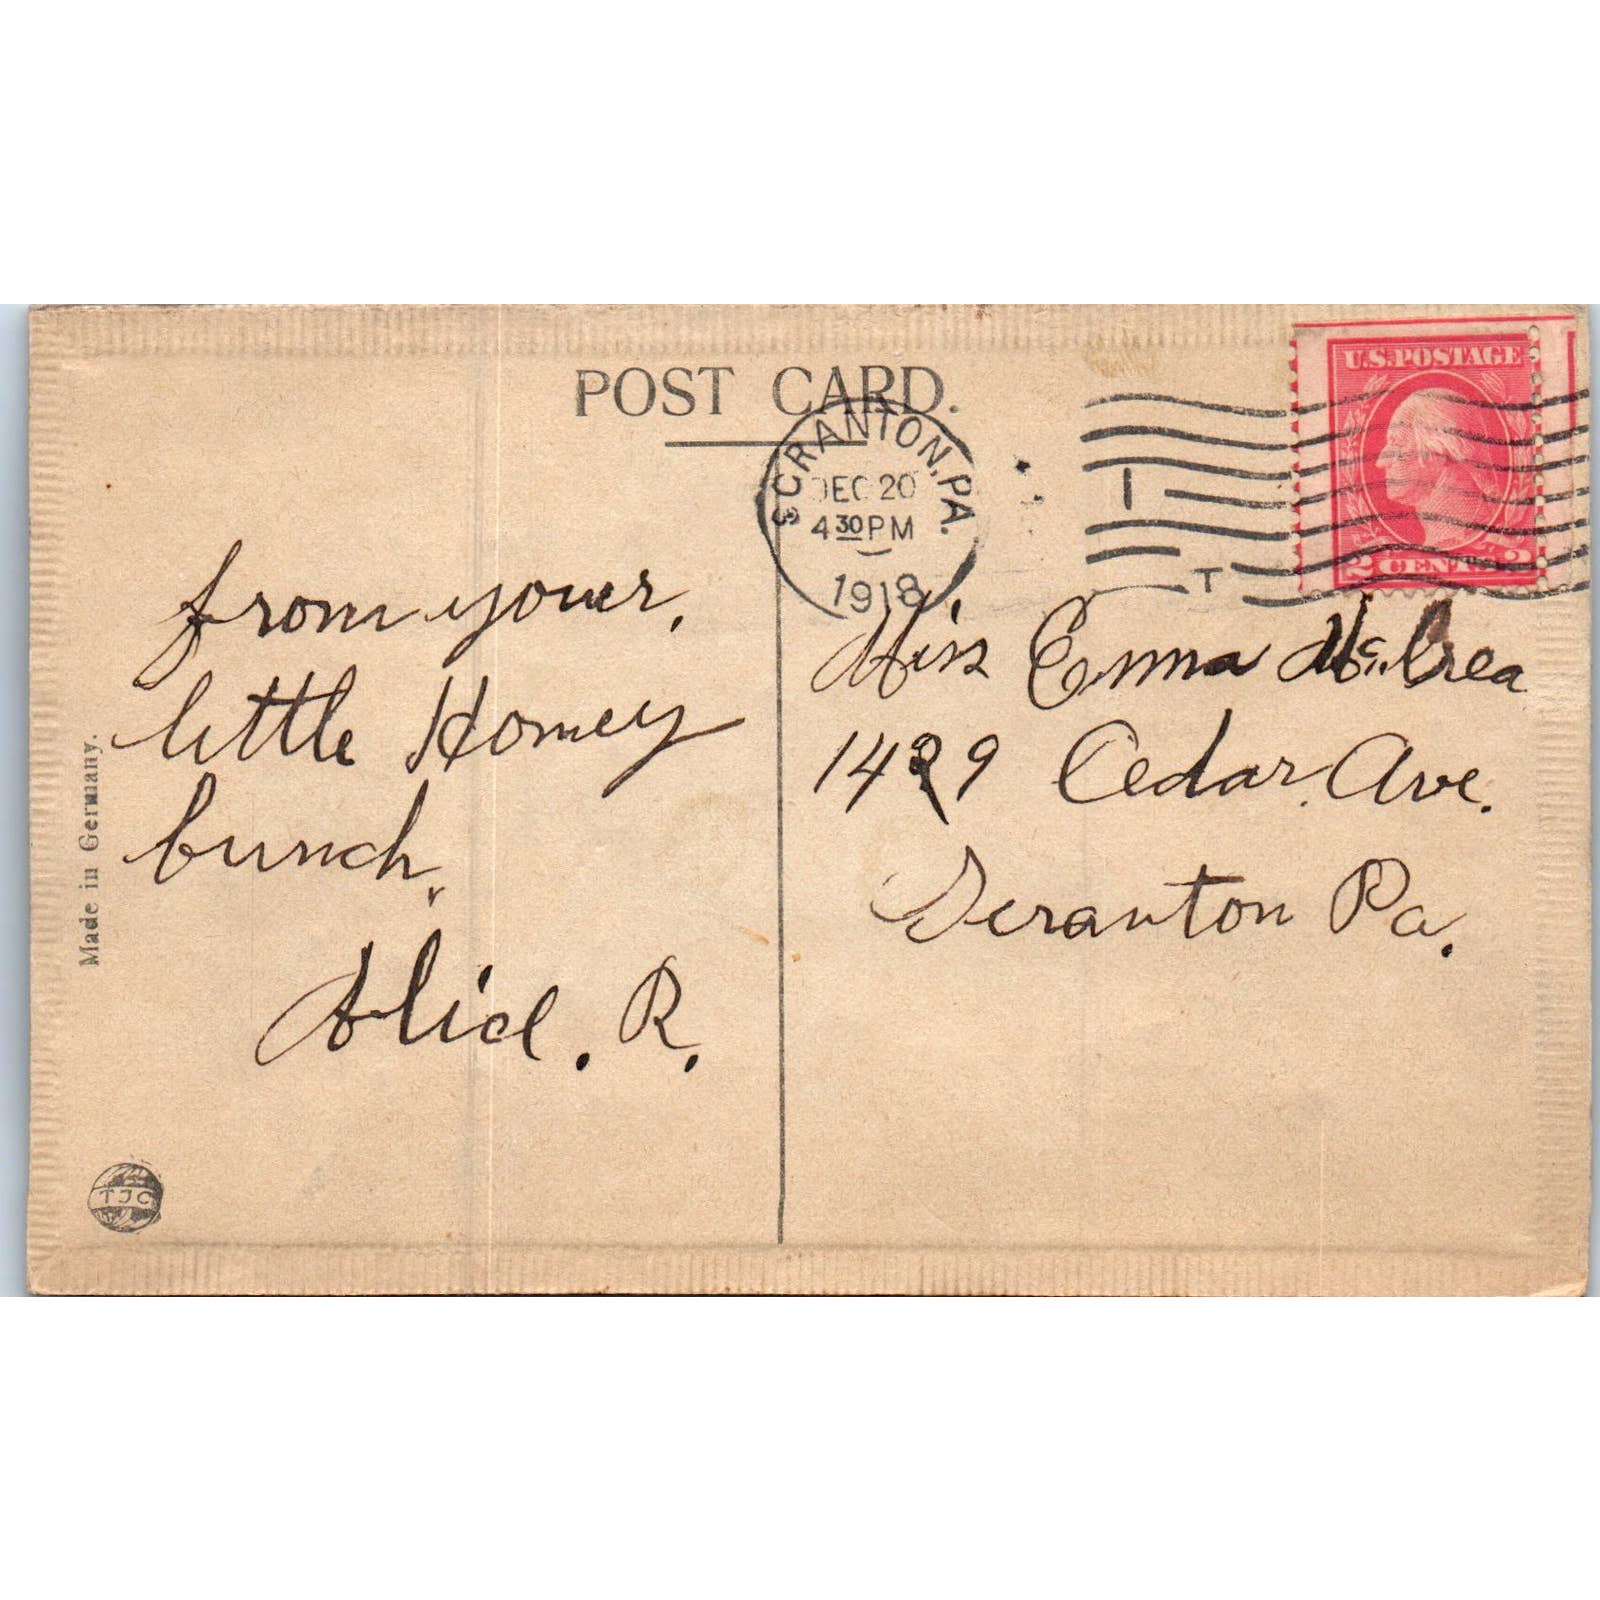 POST CARD.
SCRANTON, PA.
DEC 20
4 30 PM
1918
U.S. POSTAGE
2 CENTS 2
from youer,
little Honey
bunch,
Alice. R.
Miss Emma McCrea
1429 Cedar Ave.
Scranton Pa.
Made in Germany.
TJC